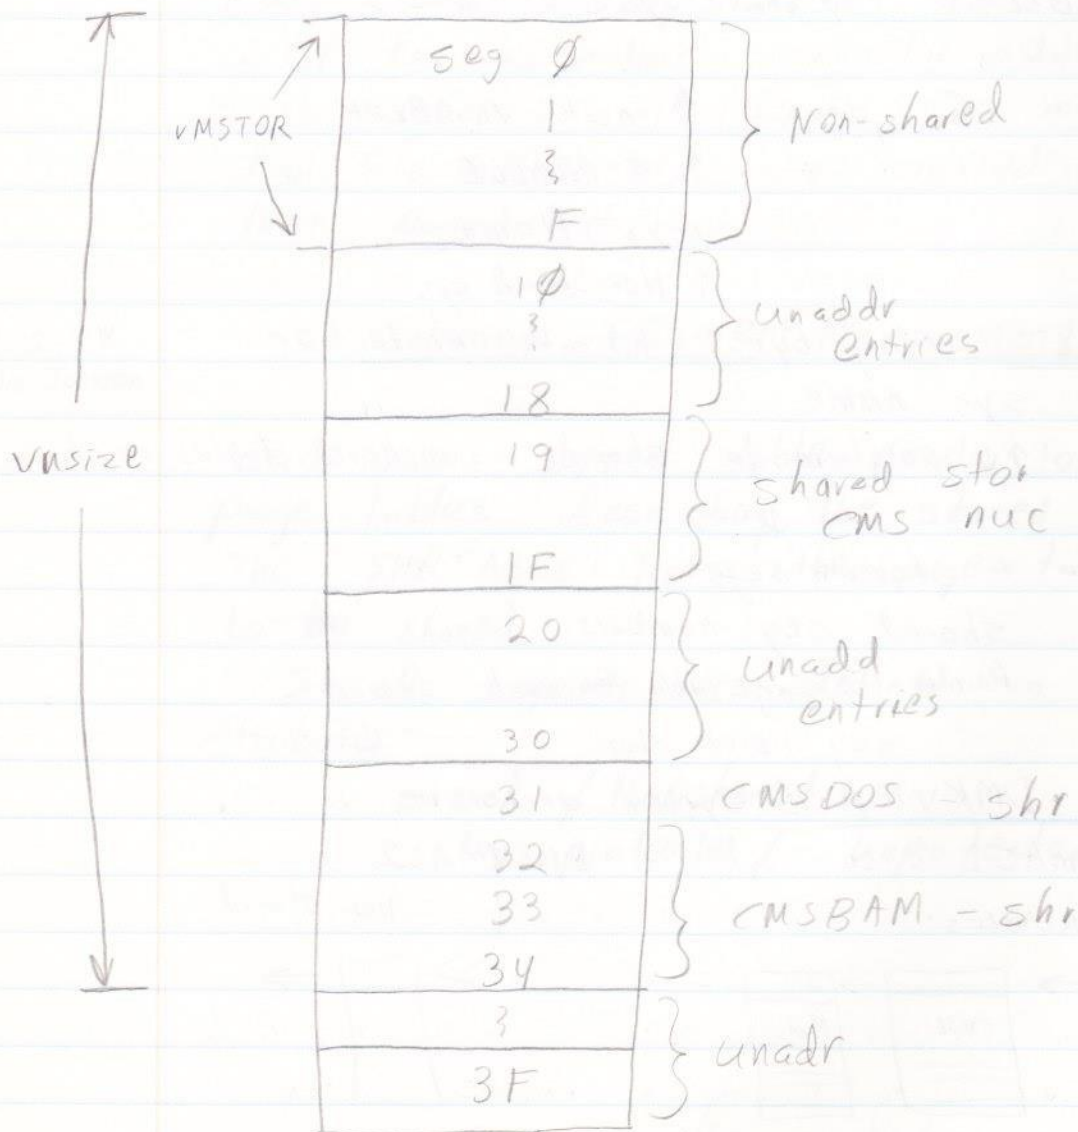 seg 0
1
F
VMSTOR
Non-shared
10
18
unaddr
entries
vmsize
19
1F
shared stor
CMS nuc
20
30
unadd
entries
31
CMSDOS shr
32
33
34
CMSBAM - shr
3F
unadr